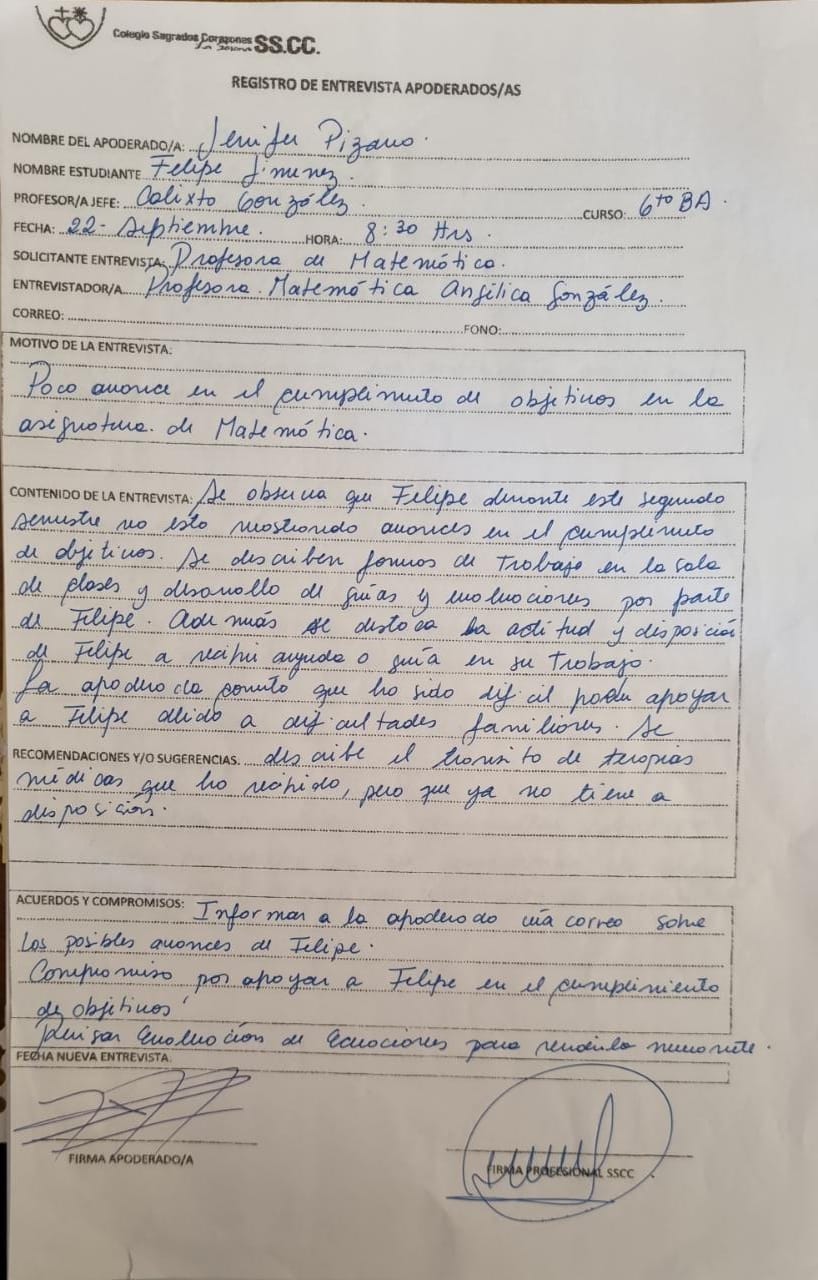 Colegio Sagrados Corazones
La Serena SS.CC.
REGISTRO DE ENTREVISTA APODERADOS/AS
NOMBRE DEL APODERADO/A: Jenifer Pizarro.
NOMBRE ESTUDIANTE Felipe Jimenez.
PROFESOR/A JEFE: Calixto González. CURSO: 6to BA.
FECHA: 22- Septiembre. HORA: 8:30 Hrs.
SOLICITANTE ENTREVISTA: Profesora de Matemática.
ENTREVISTADOR/A Profesora Matemática Angélica González.
CORREO: FONO:
MOTIVO DE LA ENTREVISTA:
Poco avance en el cumplimiento de objetivos en la
asignatura de Matemática.
CONTENIDO DE LA ENTREVISTA: Se observa que Felipe durante este segundo
semestre no está mostrando avances en el cumplimiento
de objetivos. Se describen formas de trabajo en la sala
de clases y desarrollo de guías y evaluaciones por parte
de Felipe. Además se destaca la actitud y disposición
de Felipe a recibir ayuda o guía en su trabajo.
La apoderada comenta que ha sido difícil poder apoyar
a Felipe debido a dificultades familiares. Se
RECOMENDACIONES Y/O SUGERENCIAS: describe el transito de terapias
médicas que ha recibido, pero que ya no tiene a
disposición.
ACUERDOS Y COMPROMISOS: Informar a la apoderada vía correo sobre
los posibles avances de Felipe.
Compromiso por apoyar a Felipe en el cumplimiento
de objetivos
Revisar Evaluación de Ecuaciones para rendirla nuevamente.
FECHA NUEVA ENTREVISTA
FIRMA APODERADO/A
FIRMA PROFESIONAL SSCC